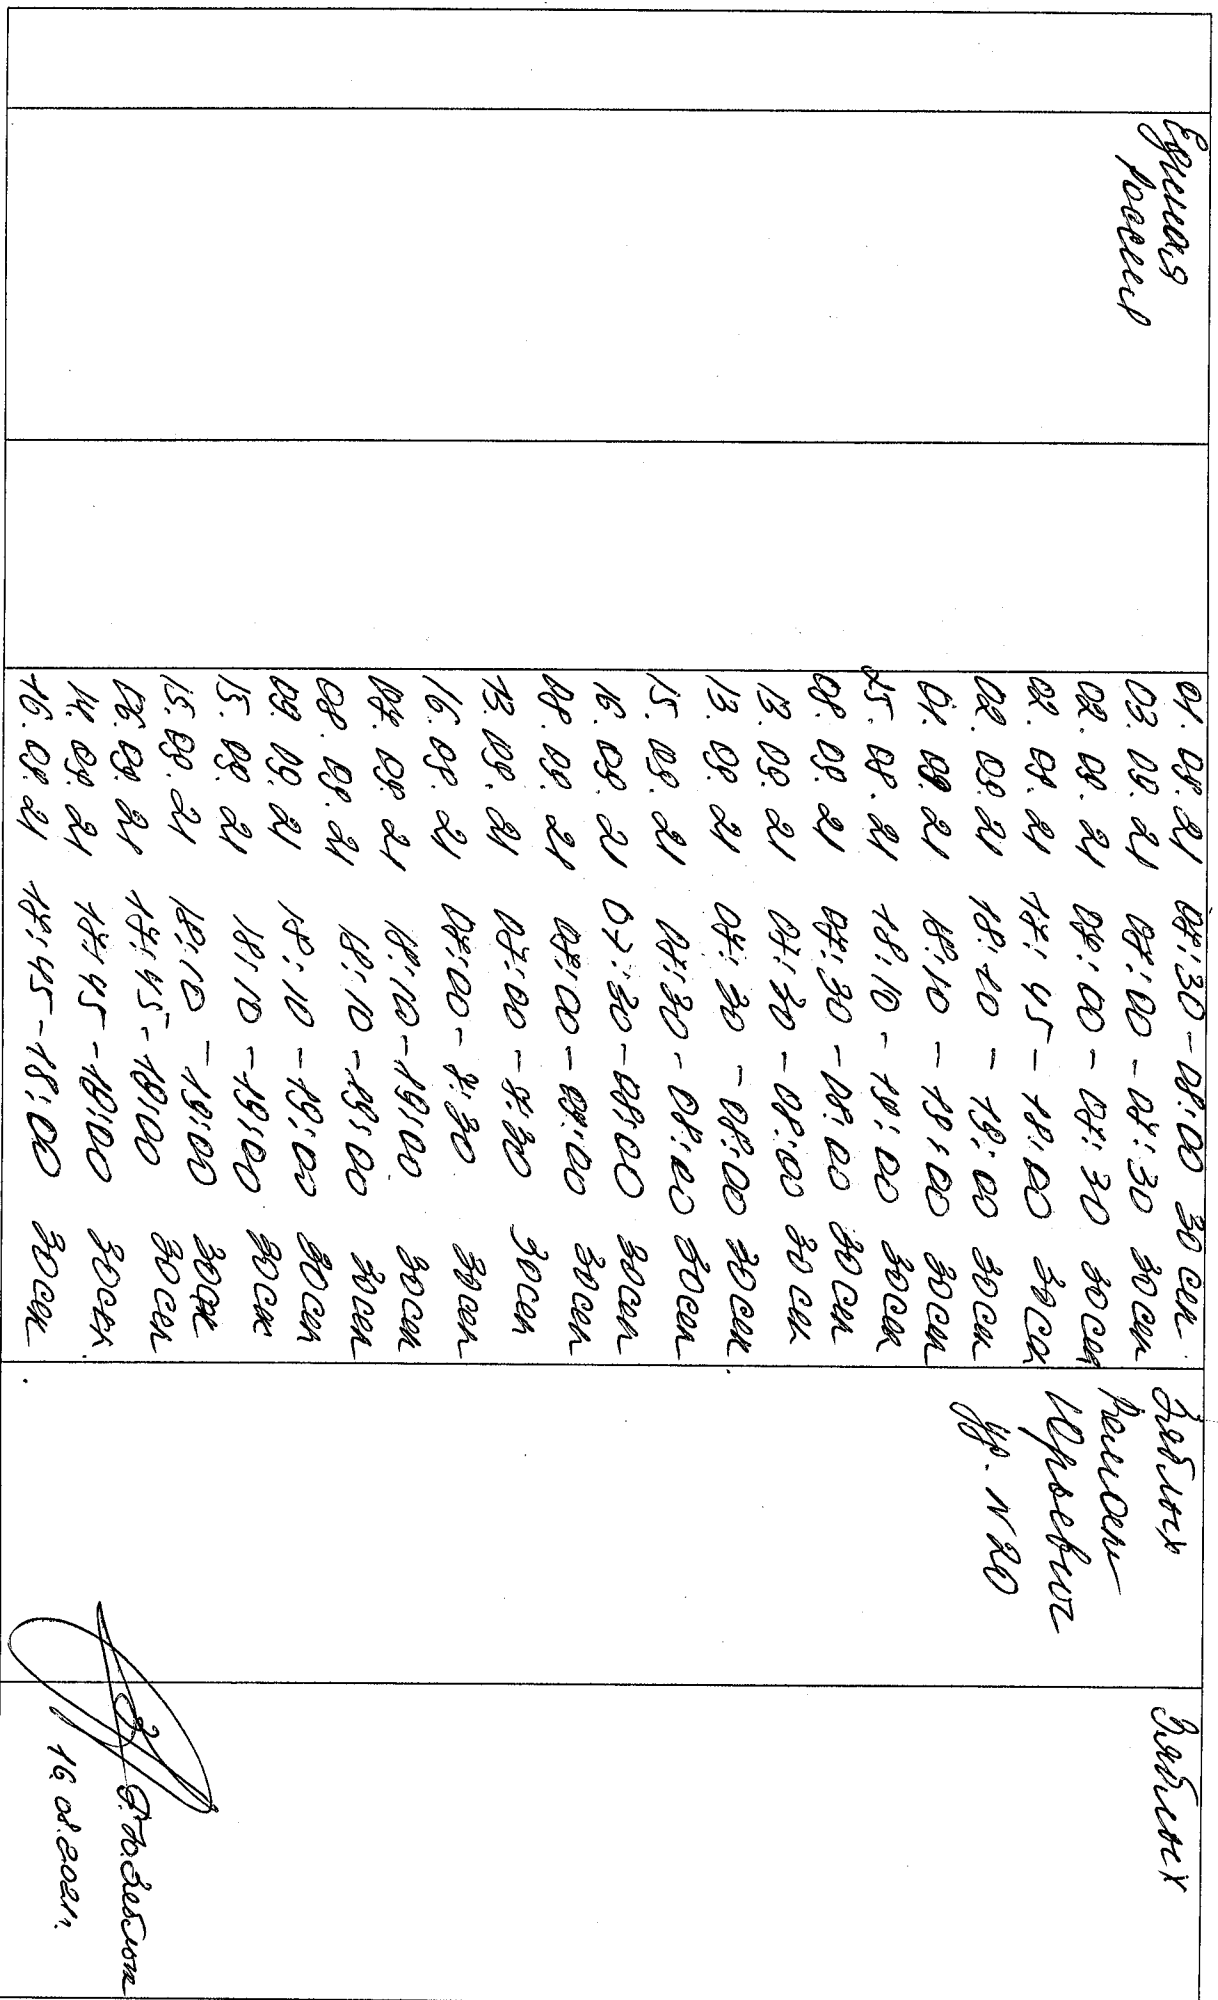 Единая
Россия
01.09.21 07:30-08:00 30 сек.
03.09.21 07:00-07:30 30 сек
02.09.21 07:00-07:30 30 сек
02.09.21 17:45-18:00 30 сек
02.09.21 18:10-19:00 30 сек
01.09.21 18:10-19:00 30 сек
18:10-19:00 30 сек
08.09.21 07:30-08:00 30 сек
13.09.21 07:30-08:00 30 сек
13.09.21 07:30-08:00 30 сек
15.09.21 07:30-08:00 30 сек
16.09.21 07:30-08:00 30 сек
08.09.21 30 сек
13.09.21 07:00-7:30 30 сек
16.09.21 07:00-7:30 30 сек
07.09.21 18:10-19:00 30 сек
08.09.21 18:10-19:00 30 сек
09.09.21 18:10-19:00 30 сек
15.09.21 18:10-19:00 30 сек
15.09.21 18:10-19:00 30 сек
06.09.21 17:45-18:00 30 сек
14.09.21 17:45-18:00 30 сек
16.09.21 17:45-18:00 30 сек
Зяблых
Роман
Юрьевич
№20
Зяблых
Р.Ю. Зяблых
16.08.2021г.